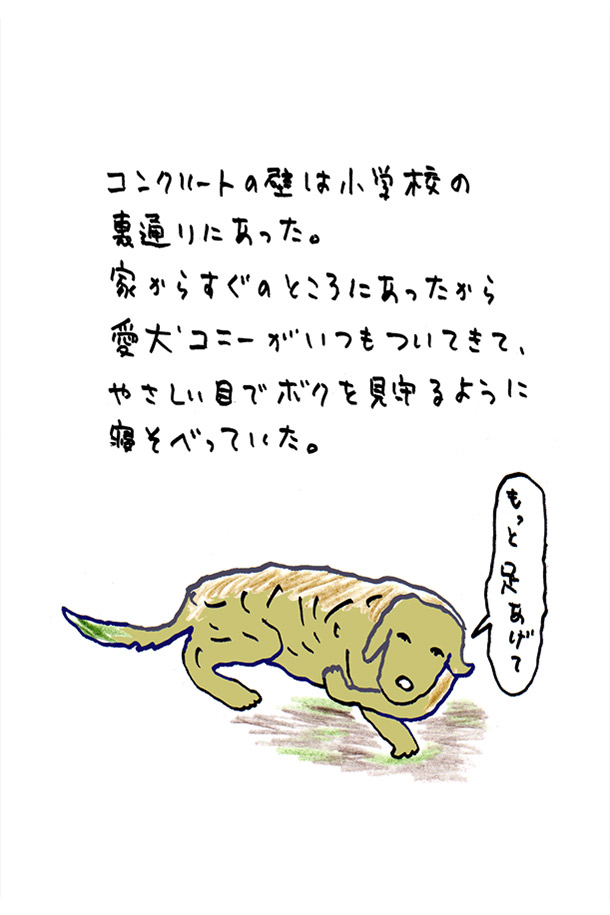 コンクリートの壁は小学校の
裏通りにあった。
家からすぐのところにあったから
愛犬コニーがいつもついてきて、
やさしい目でボクを見守るように
寝そべっていた。
もっと足あげて